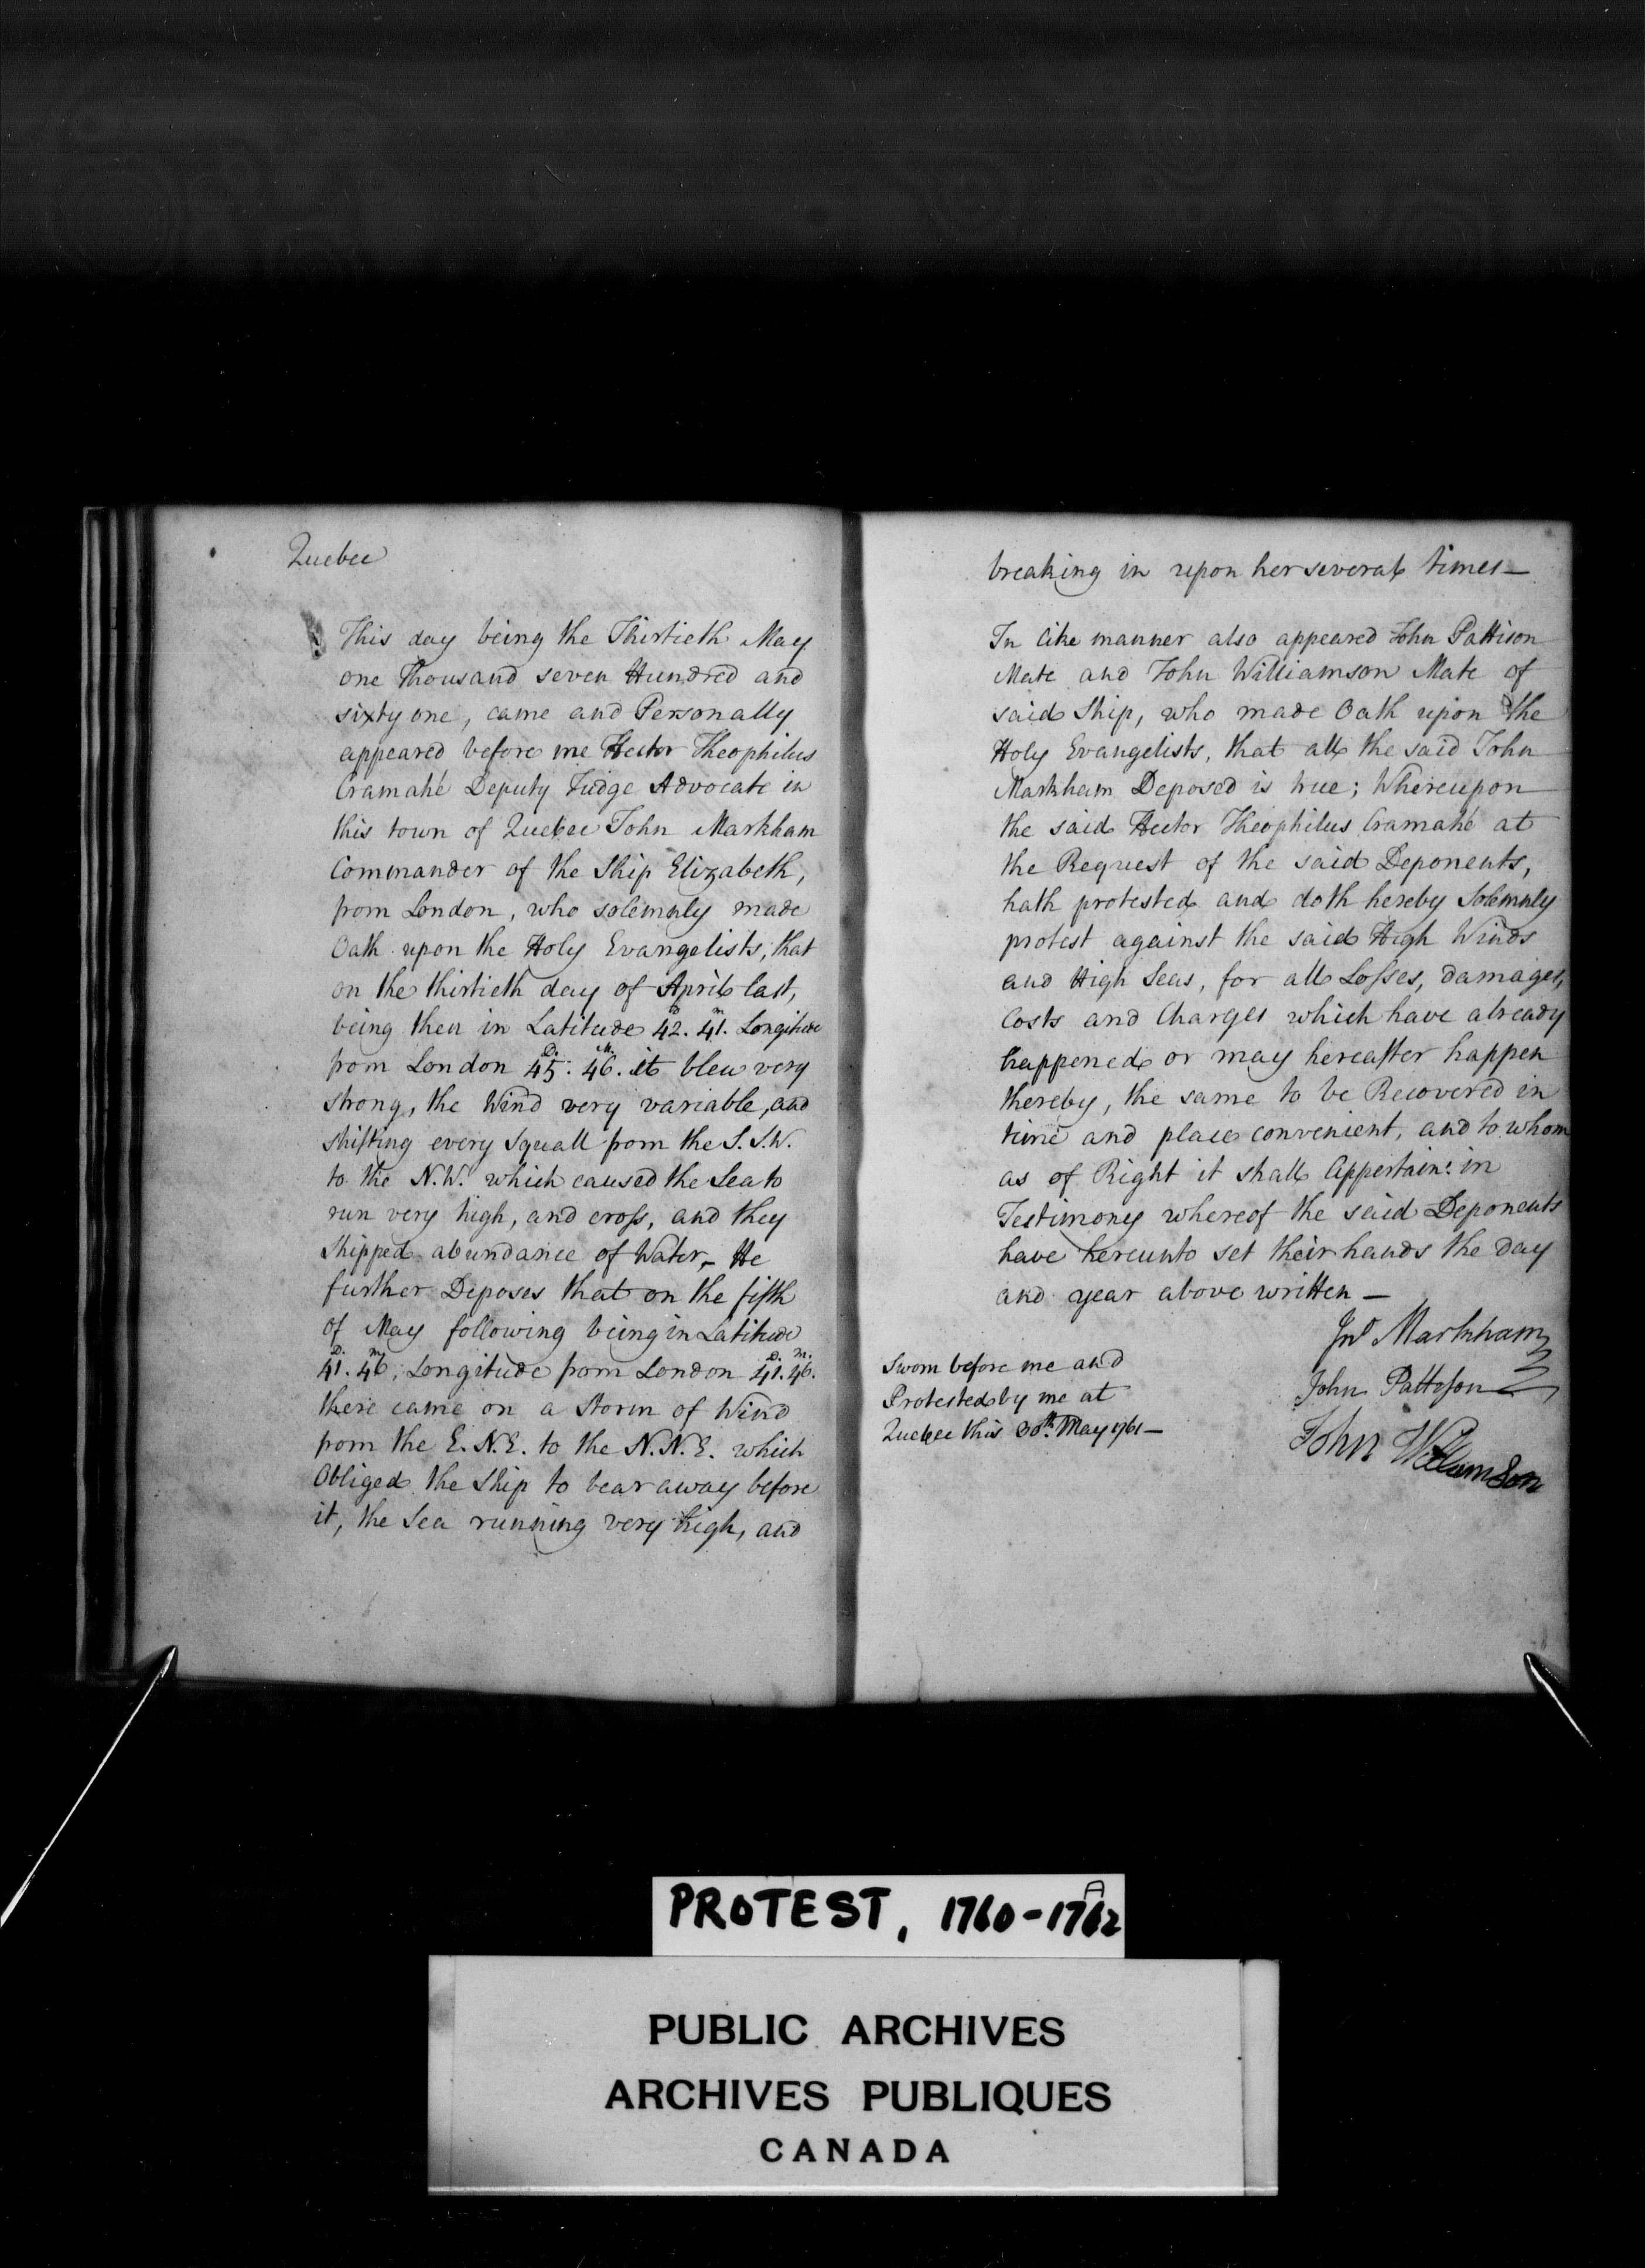 Quebec
This day being the Thirtieth May
one Thousand seven Hundred and
sixty one, came and Personally
appeared before me Hector Theophilus
Cramahé Deputy Judge Advocate in
this town of Quebec John Markham
Commander of the Ship Elizabeth,
from London, who solemnly made
Oath upon the Holy Evangelists, that
on the thirtieth day of April last,
being then in Latitude 42.D 41.m Longitude
from London 45.D. 46.M. it blew very
strong, the Wind very variable, and
shifting every Squall from the S.S.W.
to the N.W. which caused the Sea to
run very high, and cross, and they
Shipped abundance of Water, - He
further Deposes that on the fifth
of May following being in Latitude
41.D. 46.m; Longitude from London 41.D. 46.m.
there came on a Storm of Wind
from the E.N.E. to the N.N.E. which
Obliged the Ship to bear away before
it, the Sea running very high, and
breaking in upon her several times —
In like manner also appeared John Pattison
Mate and John Williamson Mate of
said Ship, who made Oath upon the
Holy Evangelists, that all the said John
Markham Deposed is true; Whereupon
the said Hector Theophilus Cramahé at
the Request of the said Deponents,
hath protested and doth hereby Solemnly
protest against the said High Winds
and High Seas, for all Losses, damages,
Costs and Charges which have already
happened or may hereafter happen
thereby, the same to be Recovered in
time and place convenient, and to whom
as of Right it shall Appertain: in
Testimony whereof the said Deponents
have hereunto set their hands the day
and year above written —
Jno Markham
John Patteson
John Williamson
Sworn before me and
Protested by me at
Quebec this 30th. May 1761 —
PROTEST, 1760-1762
PUBLIC ARCHIVES
ARCHIVES PUBLIQUES
CANADA